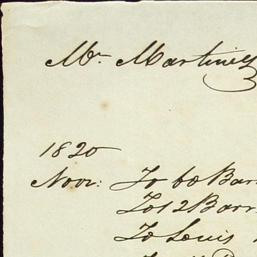 Mr. Martinez
1820
Novr: To 60 Barr
To 12 Barr
To Louis